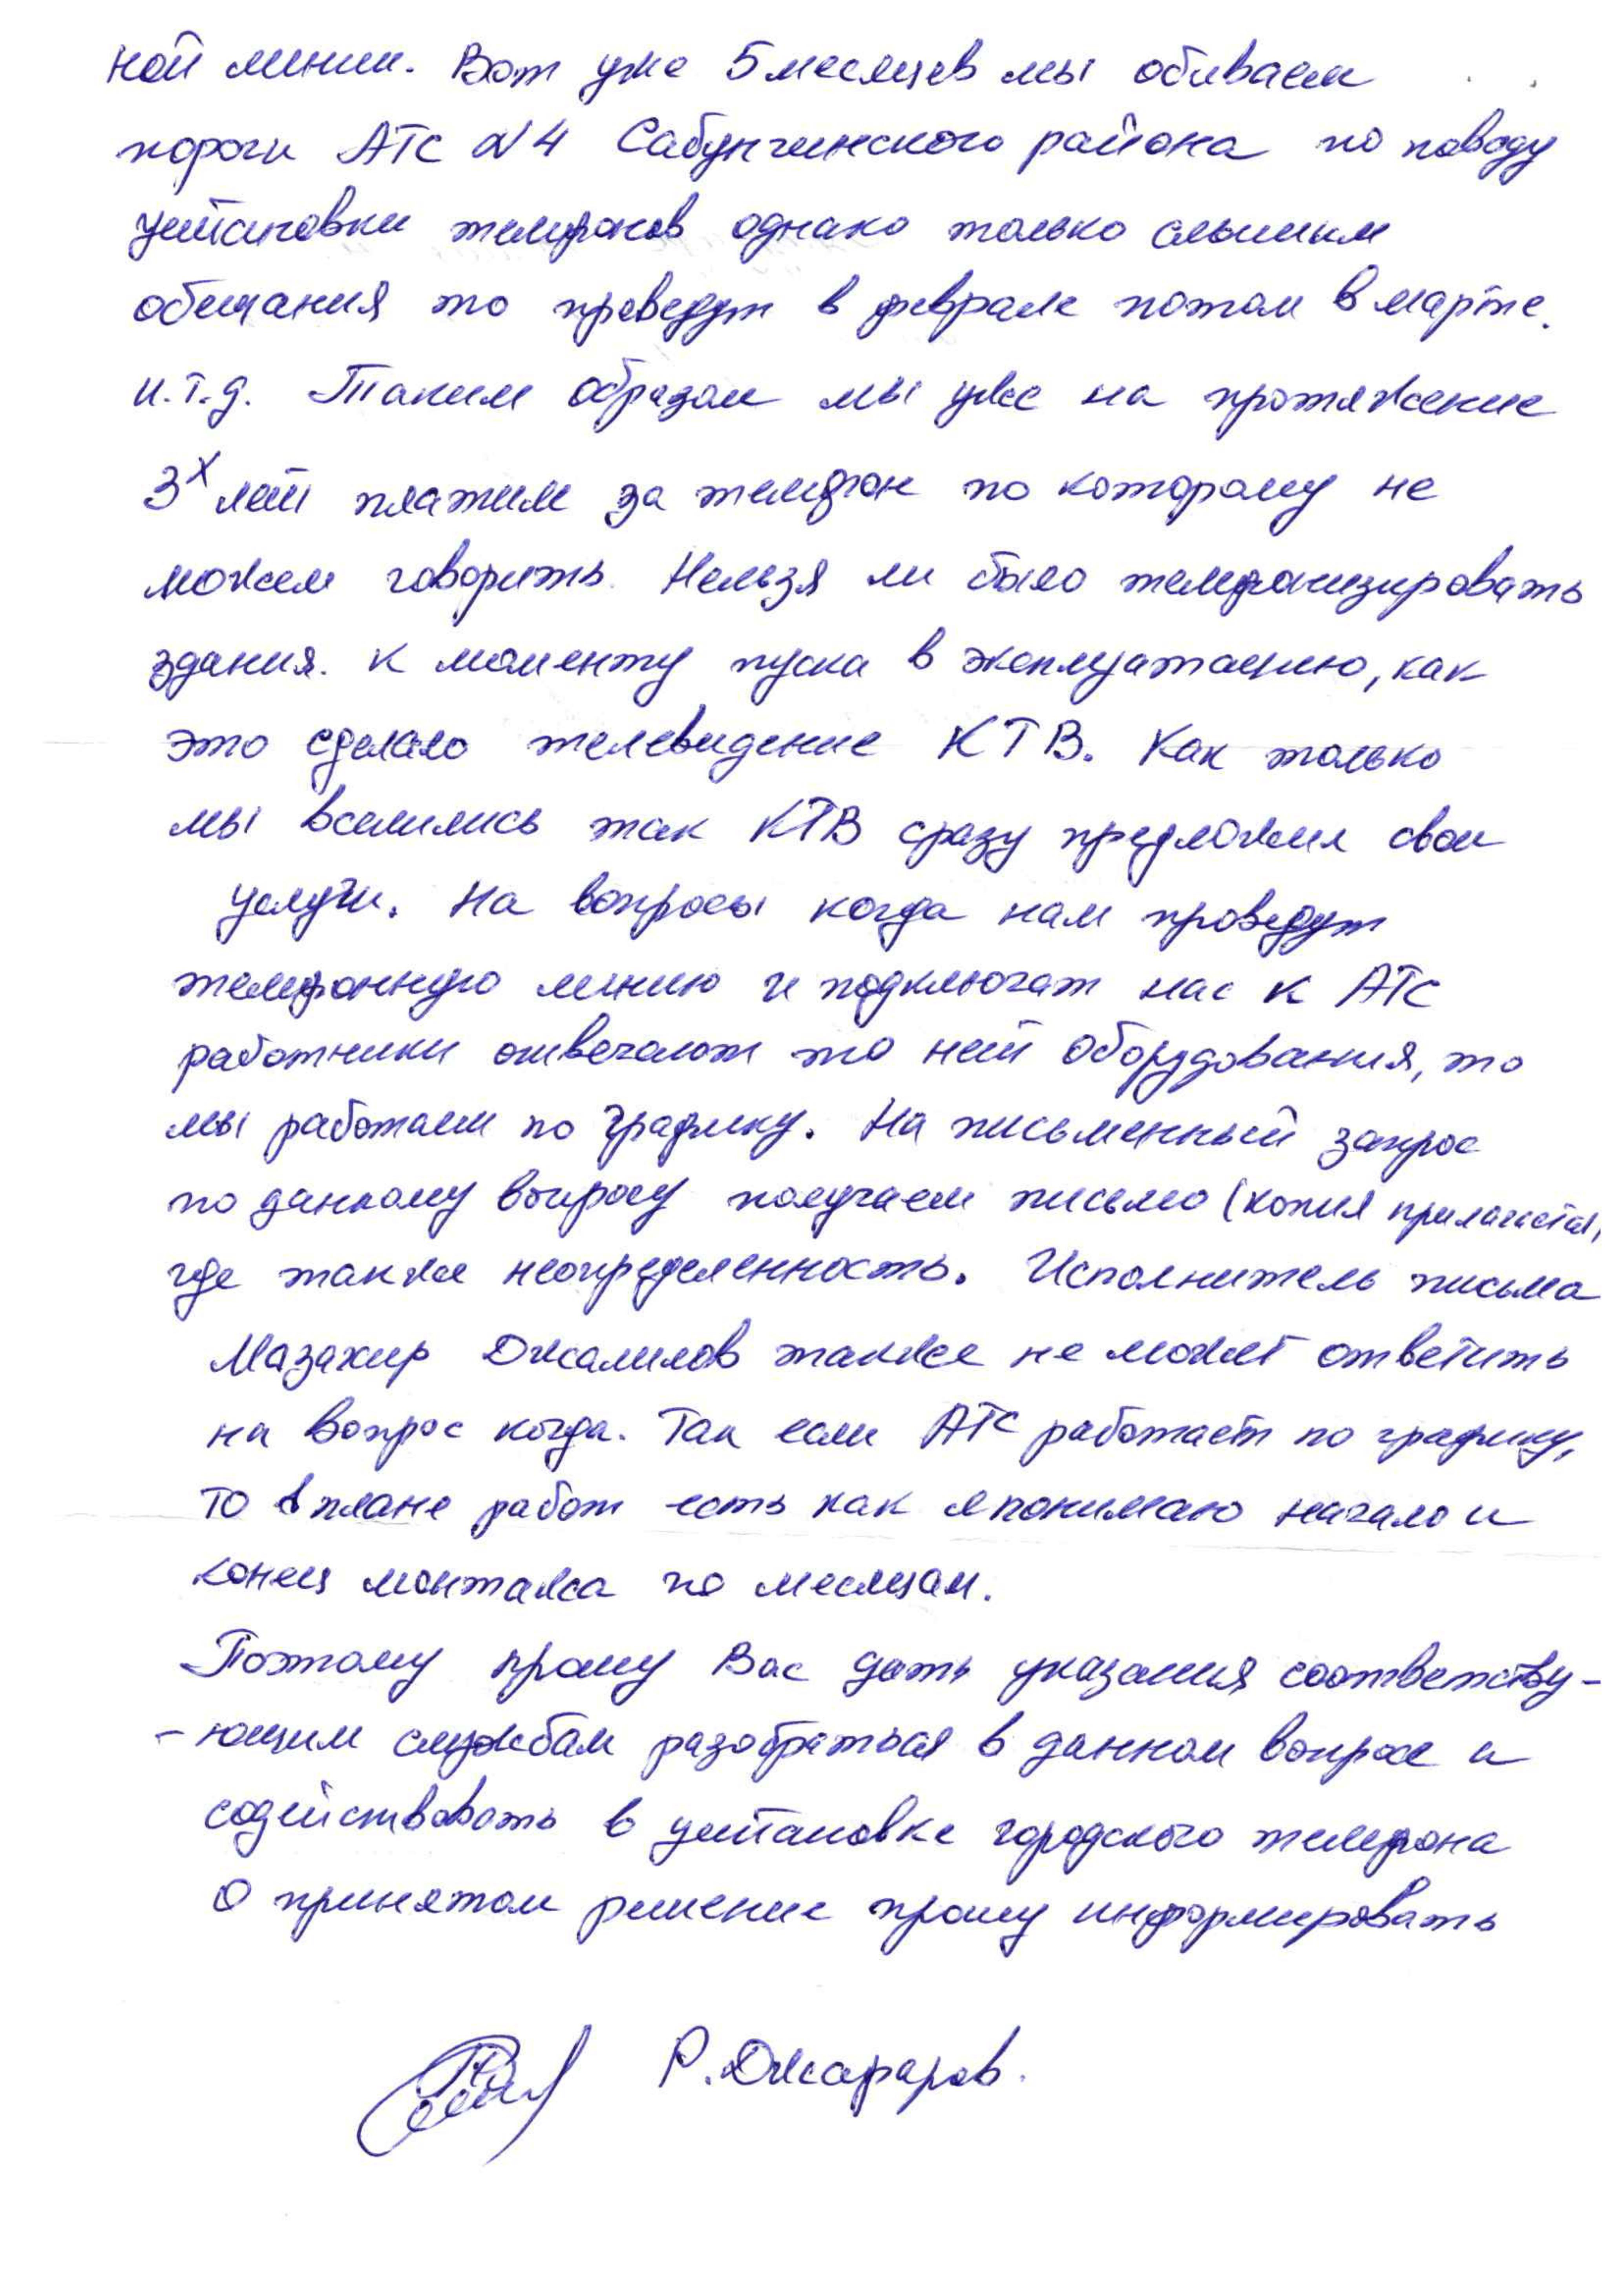 ной линии. Вот уже 5 месяцев мы обиваем
пороги АТС №4 Сабунчинского района по поводу
установки телефонов однако только слышим
обещания то проведут в феврале потом в марте.
и.т.д. Таким образом мы уже на протяжение
3х лет платим за телефон по которому не
можем говорить. Нельзя ли было телефонизировать
здания. к моменту пуска в эксплуатацию, как
это сделало телевидение КТВ. Как только
мы вселились так КТВ сразу предложил свои
услуги. На вопросы когда нам проведут
телефонную линию и подключат нас к АТС
работники отвечают то нет оборудования, то
мы работаем по графику. На письменный запрос
по данному вопросу получаем письмо (копия прилагается)
где также неопределенность. Исполнитель письма
Мазахир Джалилов также не может ответить
на вопрос когда. Так если АТС работает по графику,
то в плане работ есть как я понимаю начало и
конец монтажа по месяцам.
Поэтому прошу Вас дать указания соответству-
-ющим службам разобраться в данном вопросе и
содействовать в установке городского телефона
О принятом решение прошу информировать
Р. Джафаров.